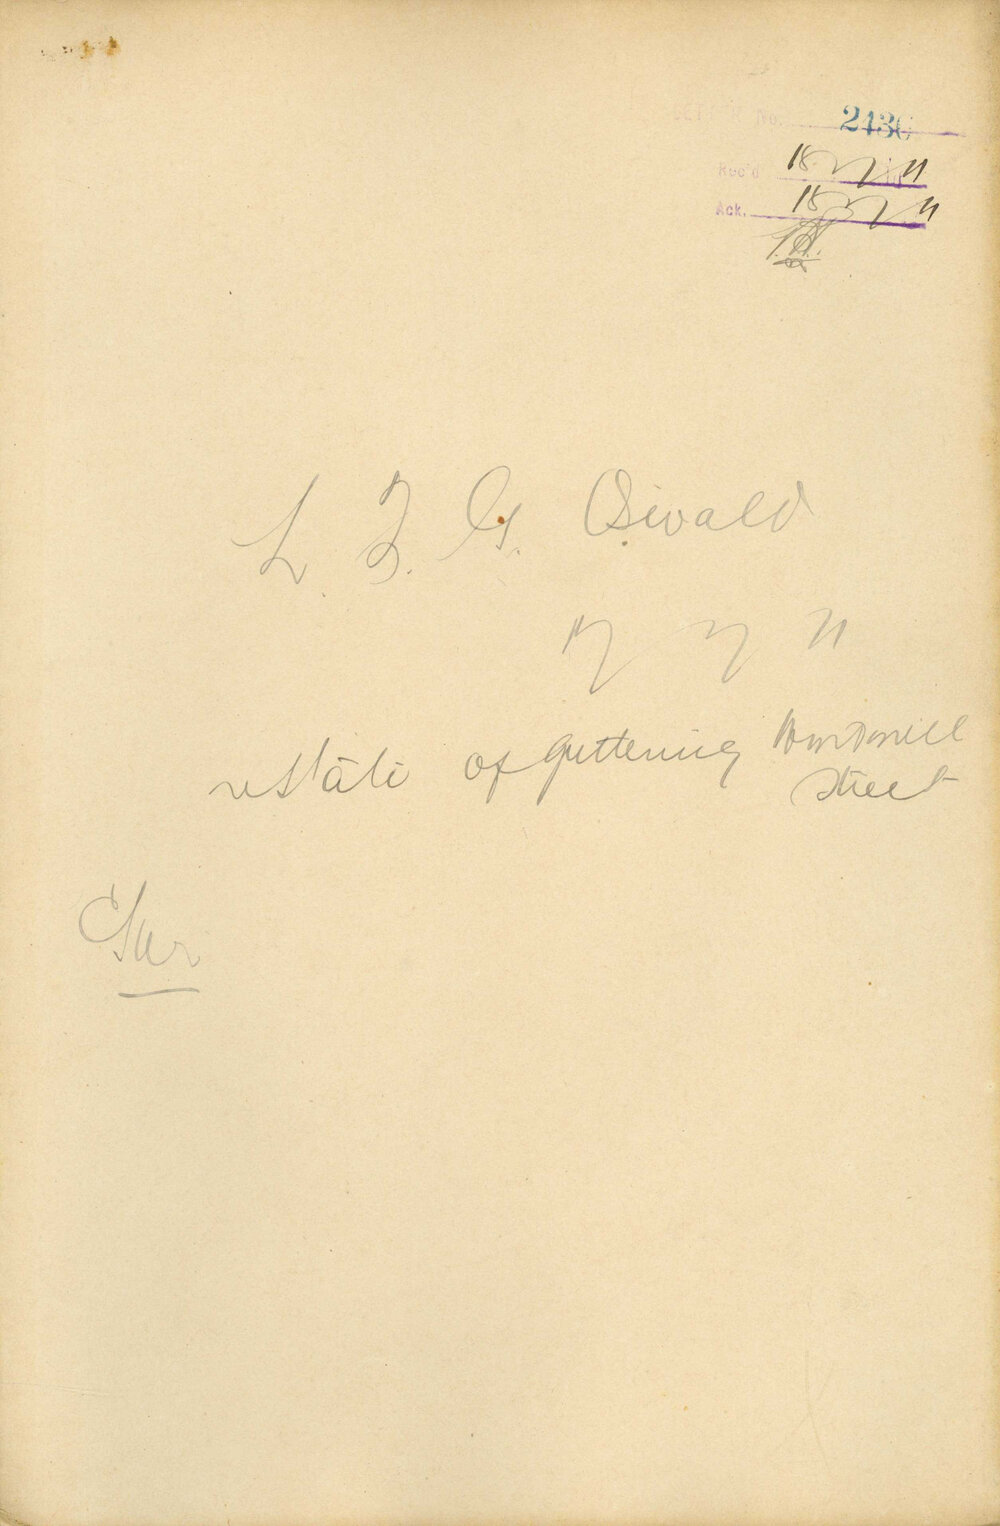 LETTER No. 2436
Rec'd 18 7 11
Ack. 18 7 11
L. F. G. Oswald
17 7 11
re state of guttering
Street